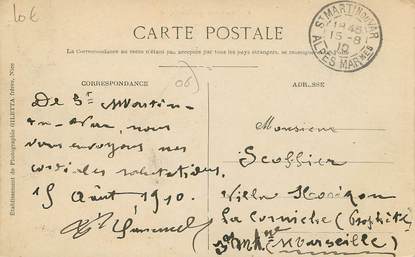 10€
CARTE POSTALE
La Correspondance au recto n'était pas acceptée par tous les pays étrangers, se renseigner
ST MARTIN DU VAR
15-8
10
ALPES MARMES
CORRESPONDANCE
ADRESSE
(06)
Etablissement de Photographie GILETTA frères, Nice
De St Martin-
du-Var, nous
vous envoyons nos
cordiales salutations.
15 Août 1910.
Monsieur
Scoffier
Villa
La Corniche (Prophète)
(Marseille)